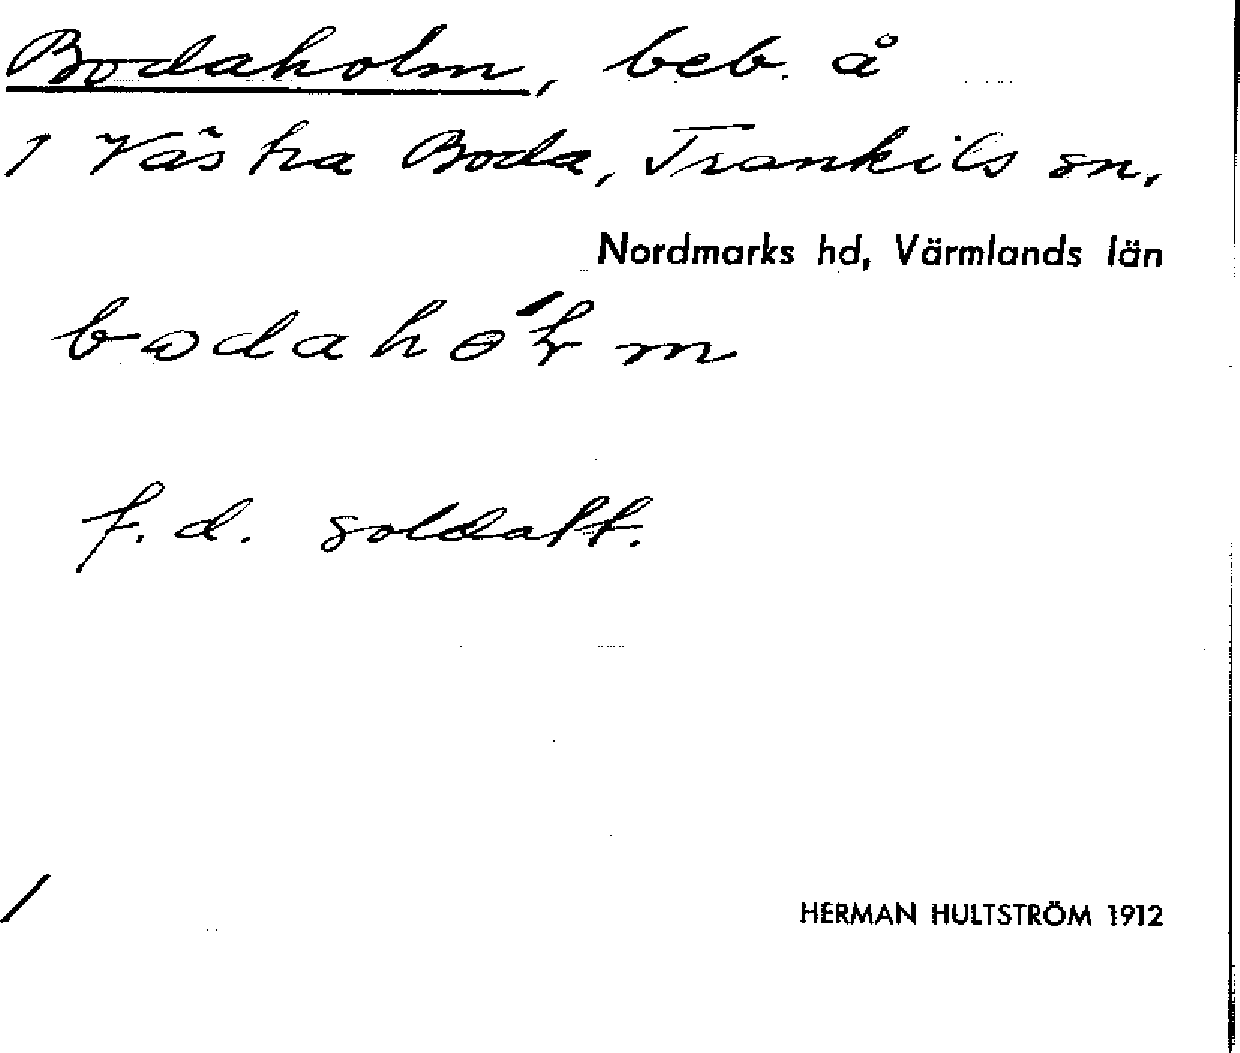 Bodaholm, beb. å
1 Västra Boda, Trankils sn,
Nordmarks hd, Värmlands län
f. d. soldatt.
/
HERMAN HULTSTRÖM 1912